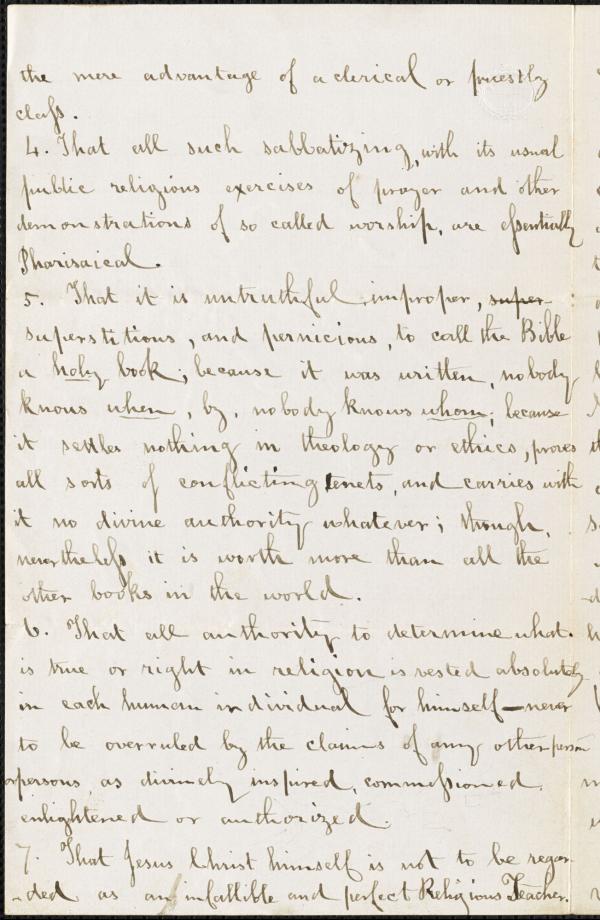 the mere advantage of a clerical or priestly
class.
4. That all such sabbatizing, with its usual
public religious exercises of prayer and other
demonstrations of so called worship, are essentially
Pharisaical.
5. That it is untruthful, improper, super-
superstitious, and pernicious, to call the Bible
a holy book; because it was written, nobody
knows when, by, nobody knows whom; because
it settles nothing in theology or ethics, proves
all sorts of conflicting tenets, and carries with
it no divine authority whatever; though,
nevertheless it is worth more than all the
other books in the world.
6. That all authority to determine what
is true or right in religion is vested absolutely
in each human individual for himself—never
to be overruled by the claims of any other person
or persons, as divinely inspired, commissioned,
enlightened or authorized.
7. That Jesus Christ himself is not to be regar-
-ded as an infallible and perfect Religious Teacher.